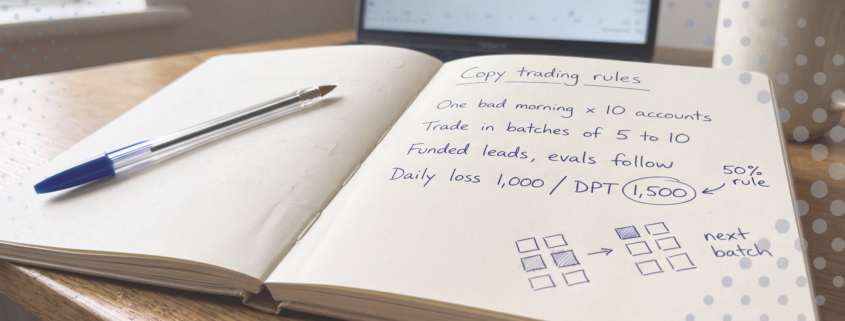 Copy trading rules
One bad morning x 10 accounts
Trade in batches of 5 to 10
Funded leads, evals follow
Daily loss 1,000 / DPT 1,500
50% rule
next batch